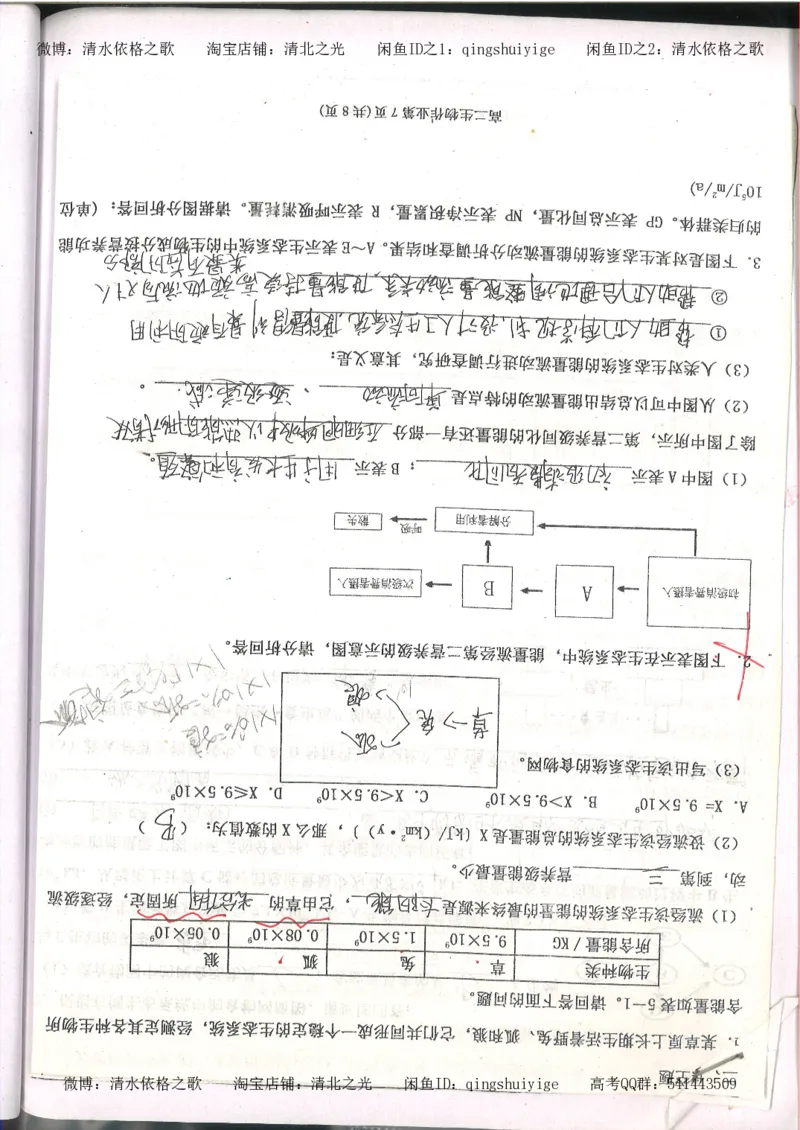 微博：清水依格之歌 淘宝店铺：清北之光 闲鱼ID之1：qingshuiyige 闲鱼ID之2：清水依格之歌
1. 某草原上长期生活着野兔、狐和狼，它们共同形成一个稳定的生态系统，经测定其各种生物所
含能量如表5—1。请回答下面的问题。
生物种类 草 兔 狐 狼
所含能量/KG 9.5×10⁹ 1.5×10⁹ 0.08×10⁹ 0.05×10⁹
(1) 流经该生态系统的能量的最终来源是太阳能，它由草的光合作用所固定，经逐级流
动，到第 三 营养级能量最少。
(2) 设流经该生态系统的总能量是X (kJ/(km²•y))，那么X的数值为：( B )
A. X= 9.5×10⁹ B. X>9.5×10⁹ C. X<9.5×10⁹ D. X≤9.5×10⁹
(3) 写出该生态系统的食物网。
草→兔 狐 狼
2. 下图表示在生态系统中，能量流经第二营养级的示意图，请分析回答。
初级消费者摄入 A B 次级消费者摄入
分解者利用 呼吸 散失
(1) 图中A表示 初级消费者同化 ；B表示 用于生长发育和繁殖。
除了图中所示，第二营养级同化的能量还有一部分 在细胞呼吸中以热能形式散失
(2) 从图中可以总结出能量流动的特点是 单向流动 、 逐级递减 。
(3) 人类对生态系统的能量流动进行调查研究，其意义是：
① 帮助人们科学规划，设计人工生态系统，使能量得到最有效的利用
② 帮助人们合理地调整能量流动关系，使能量持续高效地流向对人
类最有益的部分
3. 下图是对某生态系统的能量流动分析调查和结果。A~E表示生态系统中的生物成分按营养功能
的归类群体。GP 表示总同化量，NP 表示净积累量，R 表示呼吸消耗量。请据图分析回答：(单位
10⁵J/m²/a)
高二生物作业第 7 页(共 8 页)
微博：清水依格之歌 淘宝店铺：清北之光 闲鱼ID：qingshuiyige 高考QQ群：541443509